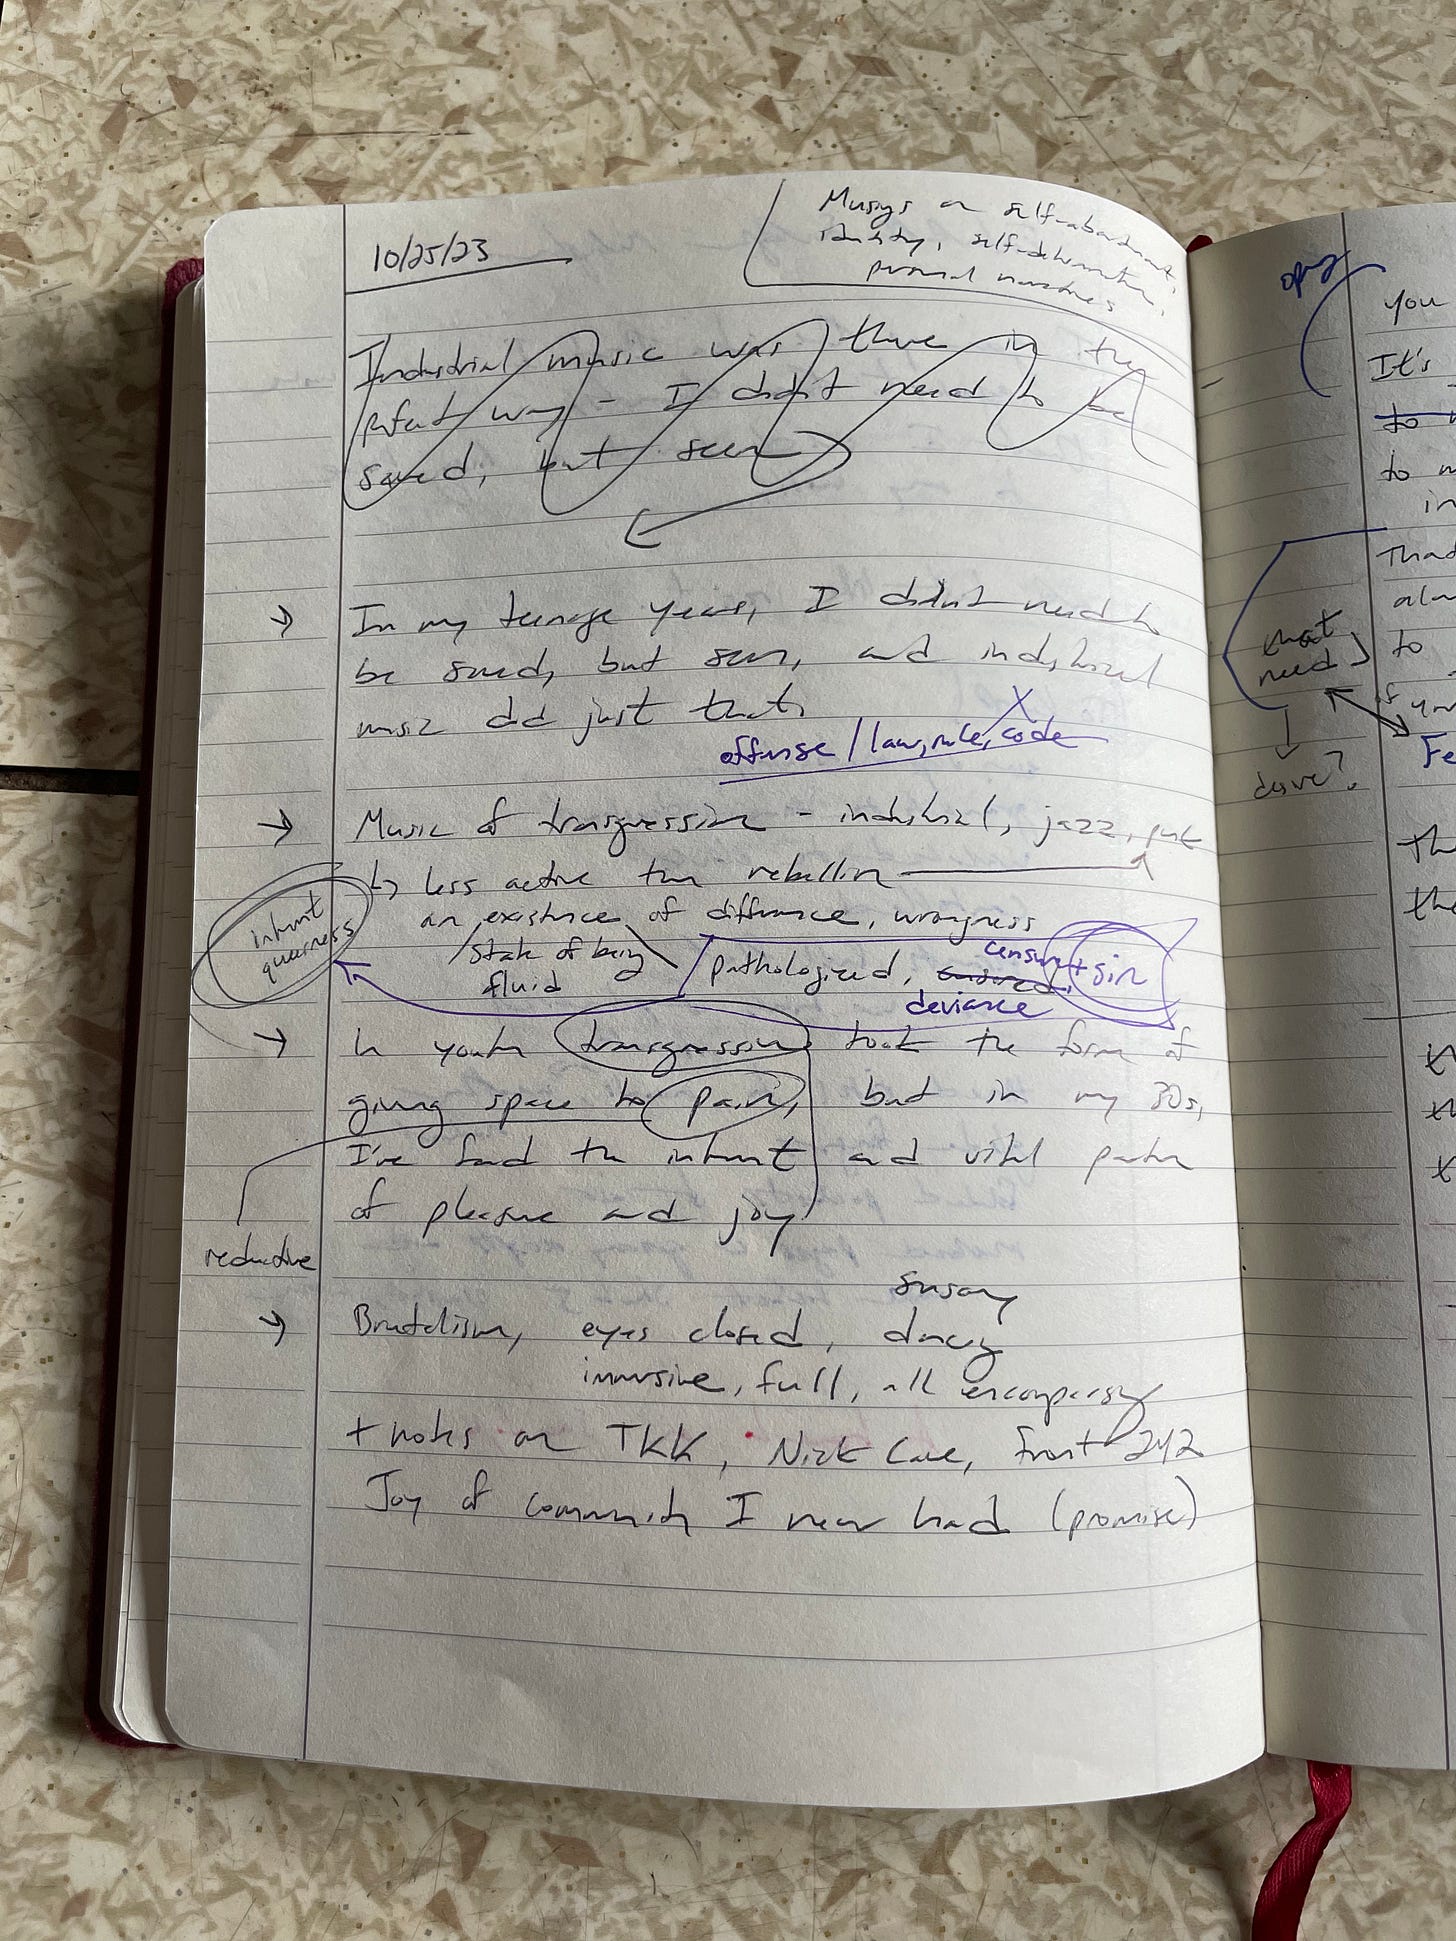 10/25/23
Musings on self-abandonment,
identity, self-determination,
personal narratives
Industrial music was there in the
perfect way - I didn't need to be
saved, but seen
In my teenage years, I didn't need to
be saved, but seen, and industrial
music did just that.
offense / law, rule, code
Music of transgression - industrial, jazz, punk
less active than rebellion
an existence of difference, wrongness
State of being
fluid
pathologized, censured, censure + sin
deviance
inherent
queerness
In youth transgression took the form of
giving space to pain, but in my 30s,
I've found the inherent and vital
of pleasure and joy
reductive
sensory
Brutalism, eyes closed, dancing
immersive, full, all encompassing
+ notes on TKK, Nick Cave, Front 242
Joy of community I never had (promise)
you
It's
to
to
in
that
need
to
deserve?
Fe